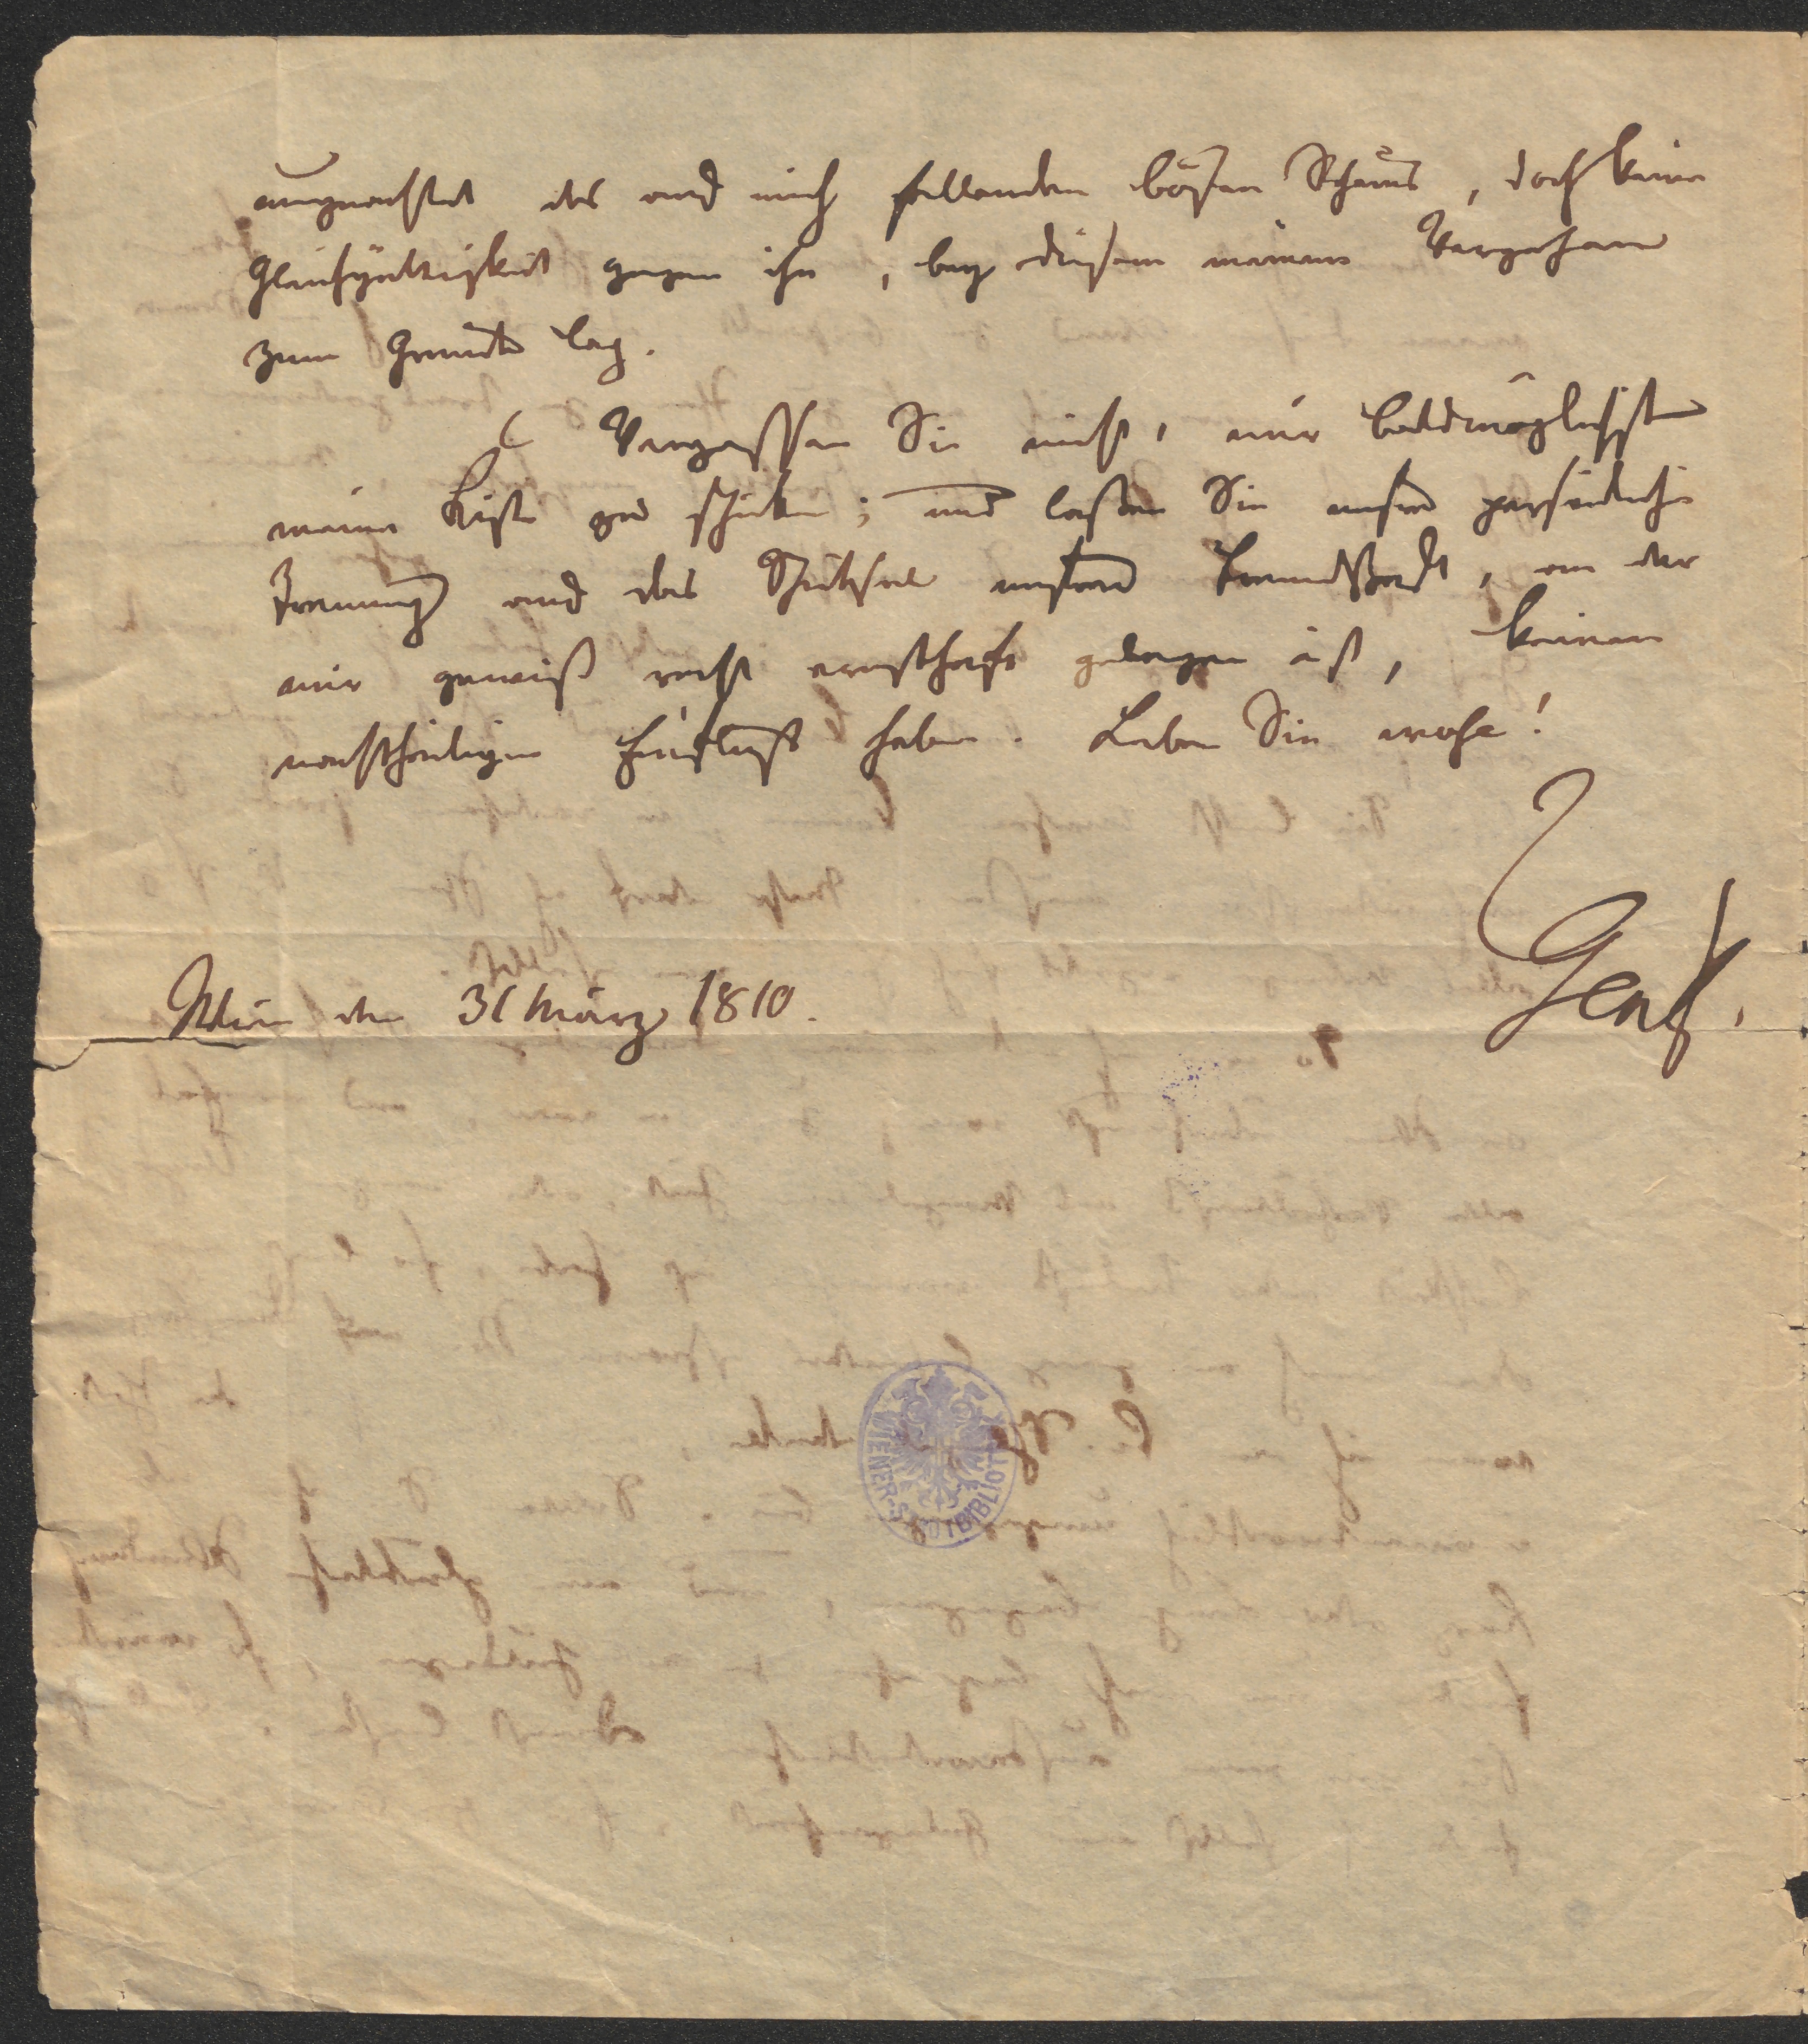 ungeachtet des auf mich fallenden bösen Scheins, doch keine
Gleichgültigkeit gegen ihn, bey diesem meinem Vergehen
zum Grunde lag.
Vergessen Sie nicht, mir baldmöglichst
meine Kiste zu schicken; und laßen Sie unsre persönliche
Trennung auf das Schicksal unsrer Freundschaft, an der
mir gewiß recht ernsthaft gelegen ist, keinen
nachtheiligen Einfluß haben. Leben Sie wohl!
Gentz.
Wien den 31 März 1810.
WIENER STADTBIBLIOTHEK